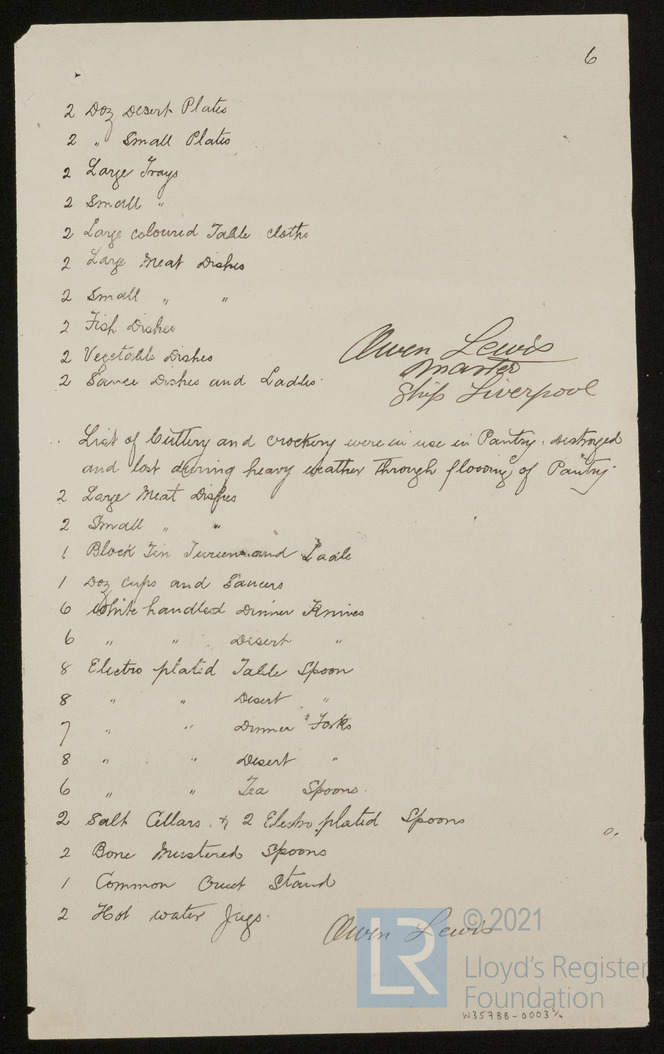 6
2 Doz Desert Plates
2 " Small Plates
2 Large Trays
2 Small "
2 Large coloured Table cloths
2 Large Meat Dishes
2 Small " "
2 Fish Dishes
2 Vegetable Dishes
2 Sauce Dishes and Ladles.
Owen Lewis
Master
Ship Liverpool
List of Cuttery and crockery were in use in Pantry. Destroyed
and lost during heavy weather through flooding of Pantry.
2 Large Meat Dishes
2 Small " "
1 Block Tin Tureen and Ladle
1 Doz cups and Saucers
6 White handled Dinner Knives
6 " " Desert "
8 Electro plated Table Spoon
8 " " Desert "
7 " " Dinner Forks
8 " " Desert "
6 " " Tea Spoons.
2 Salt Cellars. & 2 Electro plated Spoons
2 Bone Mustered Spoons
1 Common Cruet Stand
2 Hot water Jugs.
Owen Lewis
LR © 2021
Lloyd's Register
Foundation
W35788-0003